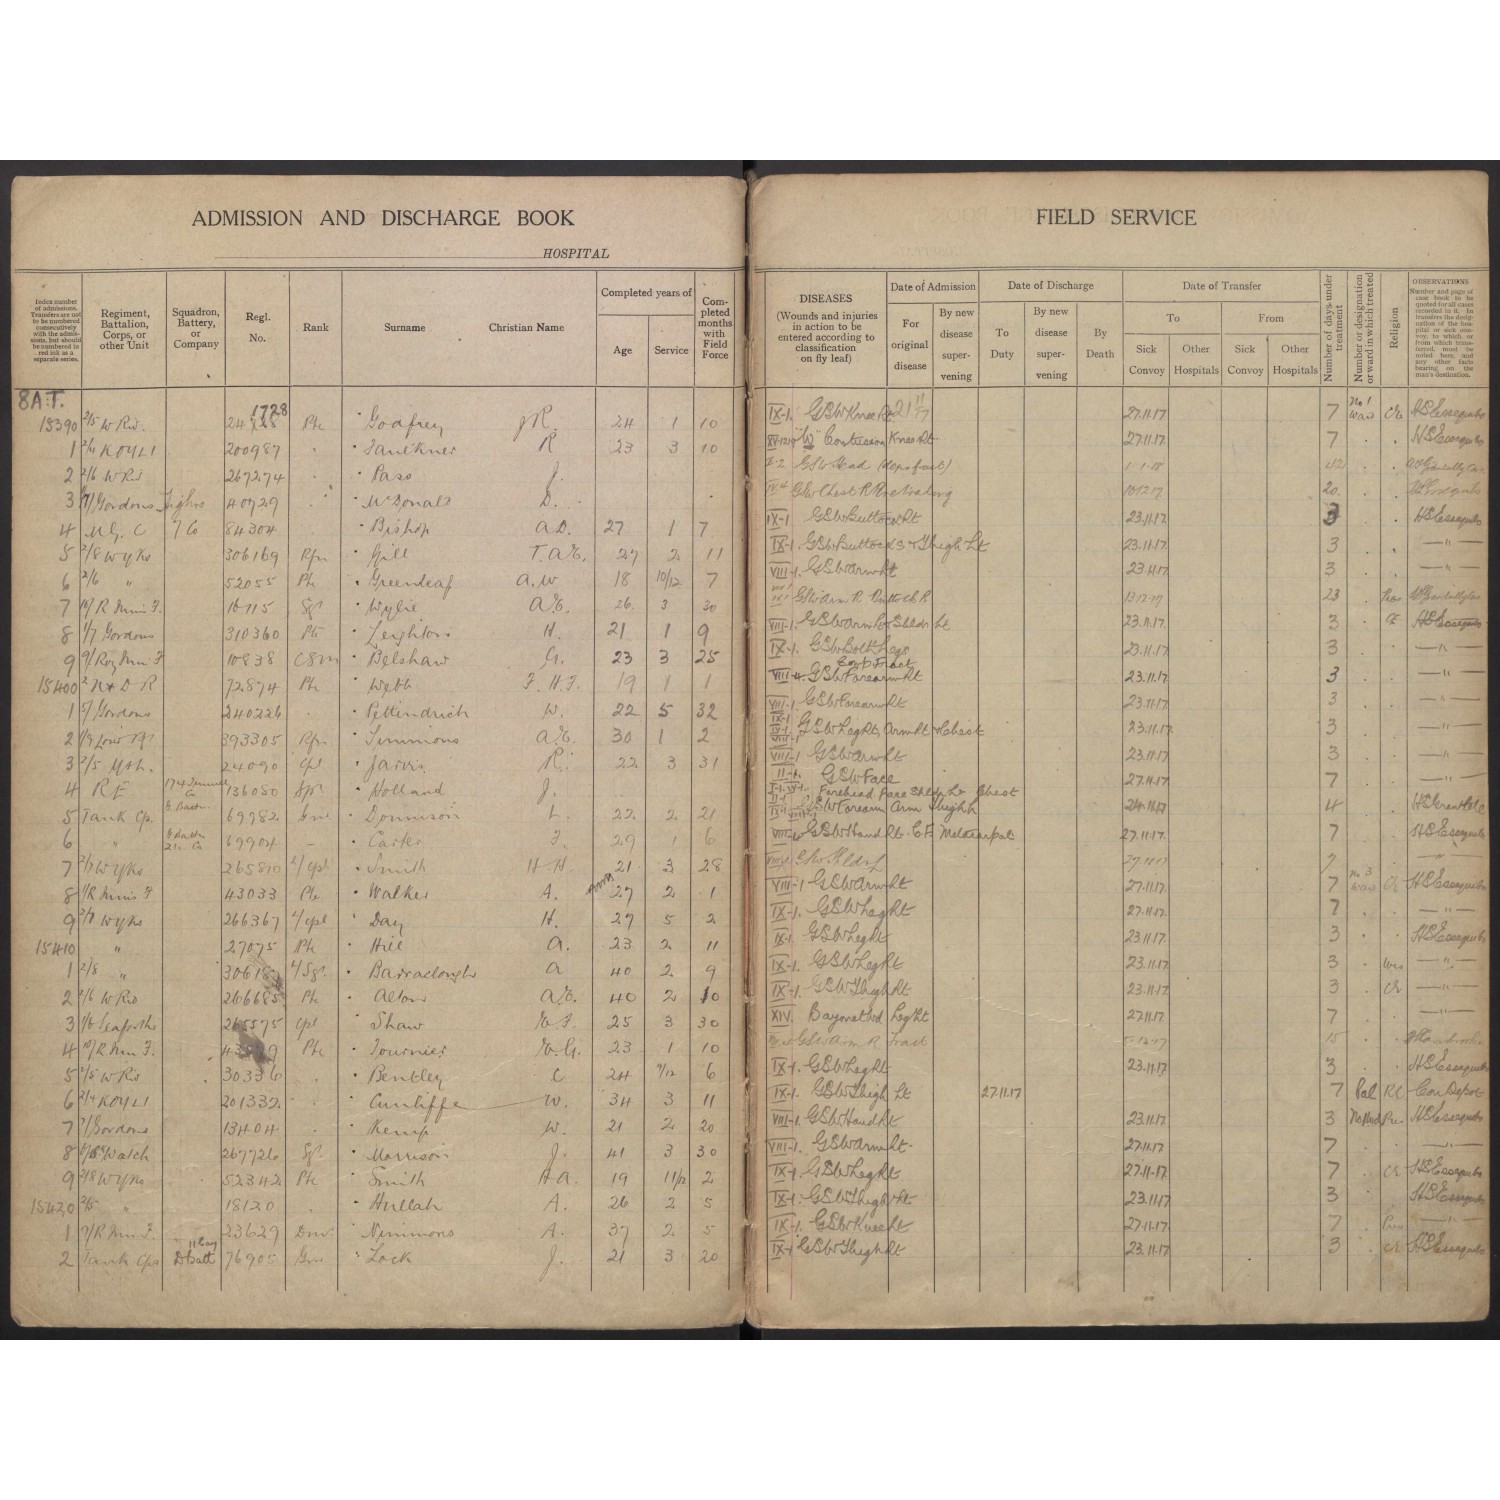 ADMISSION AND DISCHARGE BOOK
HOSPITAL
FIELD SERVICE
Index number of admissions. Transfers are not to be numbered consecutively with the admissions, but should be numbered in red ink as a separate series.
Regiment, Battalion, Corps, or other Unit
Squadron, Battery, or Company
Regl. No.
Rank
Surname
Christian Name
Completed years of
Age
Service
Completed months with Field Force
DISEASES
(Wounds and injuries in action to be entered according to classification on fly leaf)
Date of Admission
For original disease
By new disease supervening
Date of Discharge
To Duty
By new disease supervening
By Death
Date of Transfer
To
From
Sick Convoy
Other Hospitals
Sick Convoy
Other Hospitals
Number of days under treatment
Number or designation or ward in which treated
Religion
OBSERVATIONS
Number and page of case book to be quoted for all cases recorded in it. In transfers the designation of the hospital or sick convoy, to which or from which transferred, must be noted here, and any other facts bearing on the man's destination.
8 A.T.
15390 2/5 W Rid. 1728 Pte Godfrey R. 24 1 10 IX-1. GSW Knee Rt 21/11/17 27.11.17 7 No 1 Ward CE HS Essequibo
1 KOYLI 200987 Faulkner R 23 3 10 Contusion Knee Rt 27.11.17 7 HS Essequibo
2 2/6 W Rid 267274 Pass J. GSW Head 1-1-18 42
3 Gordons 40729 McDonald D. GSW Chest R Penetrating 20
4 M.G.C 7 Co 84304 Bishop A.D. 27 1 7 IX-1 GSW Buttock Rt 23.11.17 3 HS Essequibo
5 2/8 W Yks 306169 Rfn Gill T.A.E. 27 2 11 IX-1 GSW Buttocks & Thigh Lt 23.11.17 3 —"—
6 2/6 " 52055 Pte Greenleaf A.W 18 10/12 7 VIII-1. GSW Arm Rt 23.11.17 3 —"—
7 R Mun F. 16115 Sgt Wylie A.E. 26 3 30 GSW Arm R Buttock R 13-12-17 23 Pres
8 1/7 Gordons 310360 Pte Leighton H. 21 1 9 VIII-1. GSW Arm & Shldr Lt 23.11.17 3 CE HS Essequibo
9 9/Roy Mun F 10838 CSM Belshaw G. 23 3 25 IX-1. GSW Both Legs 23.11.17 3 —"—
15400 2 N & D R 72874 Pte Webb F.H.F. 19 1 1 VIII-4. GSW Forearm Rt Comp Fract 23.11.17 3 —"—
1 Gordons 240226 Pettendrich W. 22 5 32 VIII-1. GSW Forearm Rt 23.11.17 3 —"—
2 393305 Rfn Simmons A.E. 30 1 2 IX-1 VIII-1 GSW Leg Rt, Arm Rt & Chest 23.11.17 3 —"—
3 2/5 24090 Cpl Jarvis R. 22 3 31 VIII-1 GSW Arm Rt 23.11.17 3 —"—
4 R E 174 Tunnel Co 136080 Spr Holland J. II-1. GSW Face 27.11.17 7 —"—
5 Tank Cps. 69982 Gnr Donnison L. 22 2 21 Forehead Face Shldr Lt Chest GSW Forearm Arm Thigh 24.11.17 4 HS Grantala
6 " 69904 Carter F. 29 1 6 GSW Hand Rt. C.F. Metacarpal 27.11.17. 7 HS Essequibo
7 2/7 W Yks 265810 L/Cpl Smith H.H. 21 3 28 GSW Shldr L 27.11.17 7 —"—
8 1/R Muns F 43033 Pte Walker A. 27 2 1 VIII-1 GSW Arm Rt 27.11.17. 7 No 3 Ward CE HS Essequibo
9 2/7 W Yks 266367 L/Cpl Day H. 27 5 2 IX-1. GSW Leg Rt 27.11.17. 7 —"—
15410 " 27075 Pte Hill A. 23 2 11 IX-1. GSW Leg Rt 23.11.17 3 HS Essequibo
1 2/8 " L/Sgt. Barraclough A 40 2 9 IX-1. GSW Leg Rt 23.11.17. 3 Wes —"—
2 2/6 W Rid 266685 Pte Alton A.E. 40 2 10 IX-1. GSW Thigh Rt 23.11.17 3 CE —"—
3 1/6 Seaforths 265575 Cpl Shaw E.F. 25 3 30 XIV. Bayonet Wd Leg Rt 27.11.17 7 —"—
4 10/R Mun F. Pte Fournier E.G. 23 1 10 GSW Arm R Fract 15
5 2/5 W Rid 30336 Bentley C 24 9/12 6 IX-1. GSW Leg Rt 23.11.17 3 HS Essequibo
6 2/4 KOYLI 201332 Cunliffe W. 34 3 11 IX-1. GSW Thigh Lt 27.11.17 7 Pal RC Con Depot
7 Gordons 13404 Kemp W. 21 2 20 VIII-1. GSW Hand Rt 23.11.17 3 Pres HS Essequibo
8 Watch 267726 Sgt Morrison J. 41 3 30 VIII-1. GSW Arm Rt 27.11.17 7 —"—
9 2/8 W Yks 52342 Pte Smith H A. 19 11/12 2 IX-1. GSW Leg Rt 27.11.17. 7 CE HS Essequibo
15420 2/5 " 18120 Hullah A. 26 2 5 IX-1. GSW Thigh Rt 23.11.17 3 HS Essequibo
1 9/R Mun F. 23629 Dmr Nimmons A. 37 2 5 IX-1. GSW Knee Rt 27.11.17. 7 Pres —"—
2 Tank Cps D Batt 76905 Gnr Lock J. 21 3 20 IX-1 GSW Thigh Rt 23.11.17 3 CE HS Essequibo